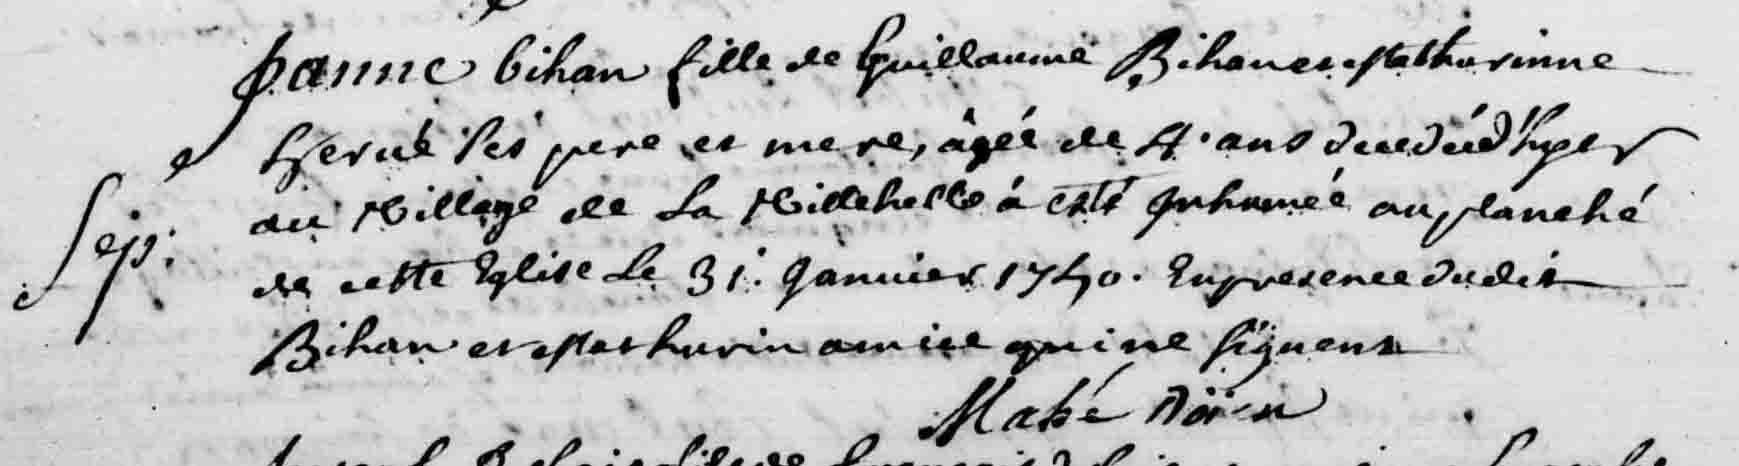 Janne bihan fille de Guillaume Bihan et Mathurinne
Hervé ses pere et mere, âgée de 4. ans decedéé d'hyer
au Village de La Villehelle á esté Inhumée au planché
Sep:
de cette Eglise Le 31. Janvier 1740. En presence dudit
Bihan et Mathurin amice qui ne signent
Mahé